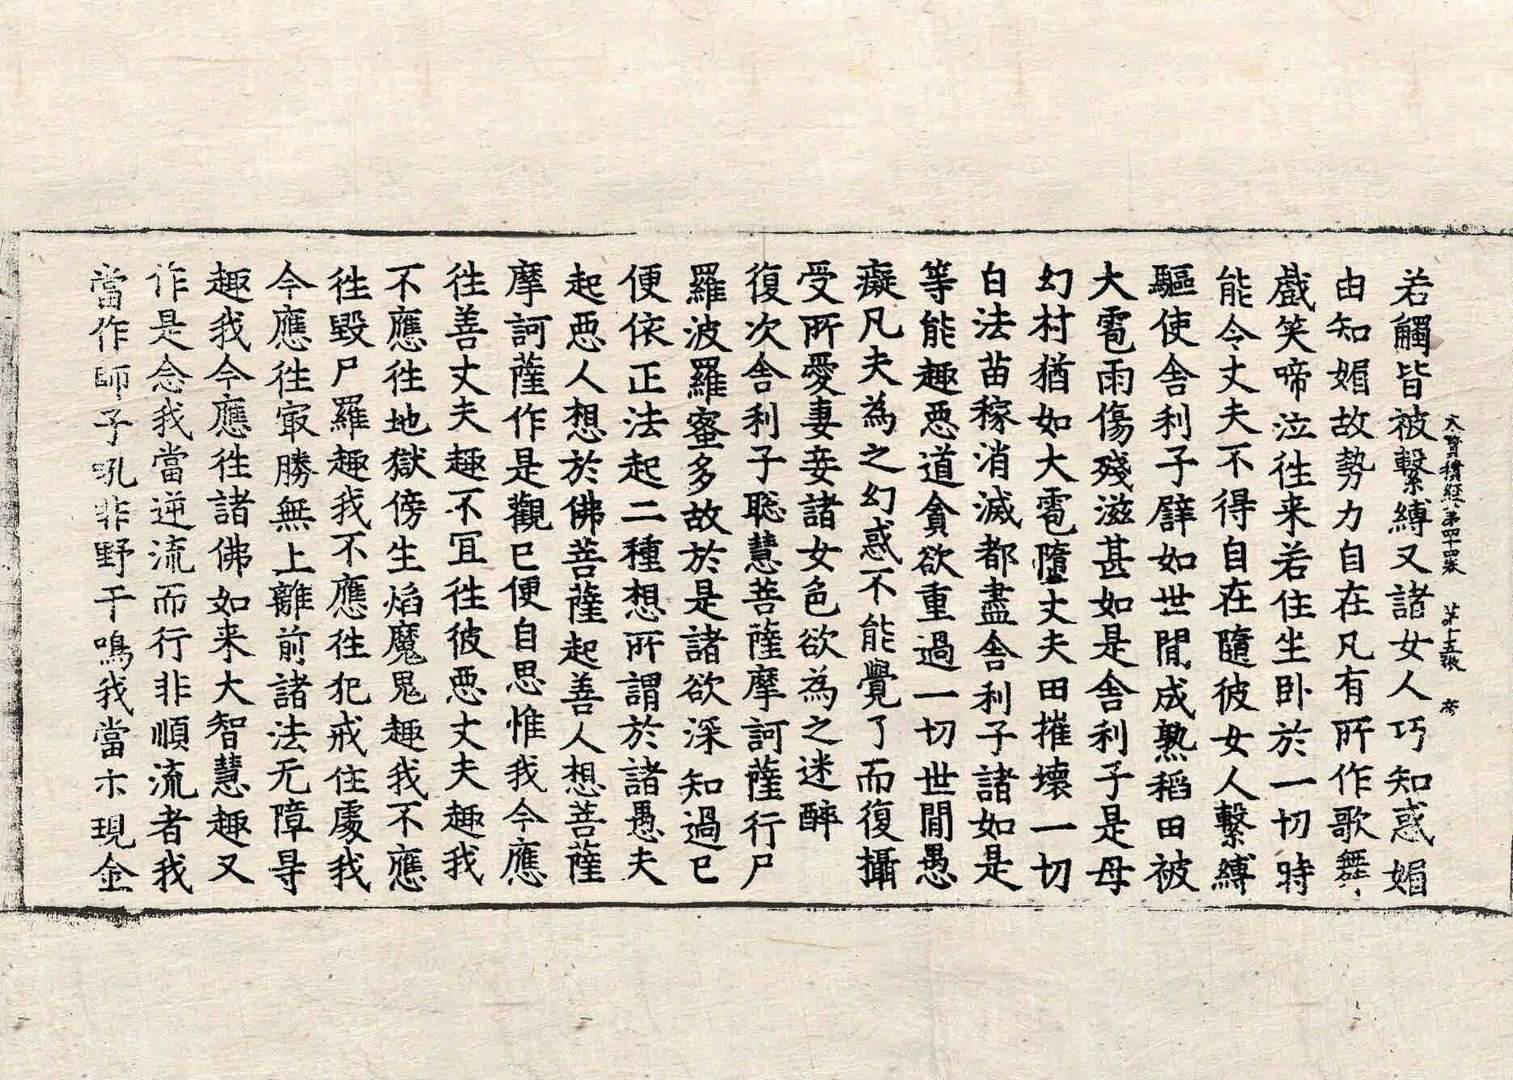 大寶積經第四十四卷　第十五張　考
若觸皆被繫縛又諸女人巧知惑媚
由知媚故勢力自在凡有所作歌舞
戲笑啼泣徃来若住坐卧於一切時
能令丈夫不得自在隨彼女人繫縛
驅使舍利子譬如世閒成熟稻田被
大雹雨傷殘滋甚如是舍利子是母
幻村猶如大雹墮丈夫田摧壞一切
白法苗稼消滅都盡舍利子諸如是
等能趣惡道貪欲重過一切世閒愚
癡凡夫為之幻惑不能覺了而復攝
受所愛妻妾諸女色欲為之迷醉
復次舍利子聡慧菩薩摩訶薩行尸
羅波羅蜜多故於是諸欲深知過已
便依正法起二種想所謂於諸愚夫
起惡人想於佛菩薩起善人想菩薩
摩訶薩作是觀已便自思惟我今應
徃善丈夫趣不冝徃彼惡丈夫趣我
不應徃地獄傍生焰魔鬼趣我不應
徃毀尸羅趣我不應徃犯戒住處我
今應徃㝡勝無上離前諸法无障㝵
趣我今應徃諸佛如来大智慧趣又
作是念我當逆流而行非順流者我
當作師子吼非野干鳴我當亦現金